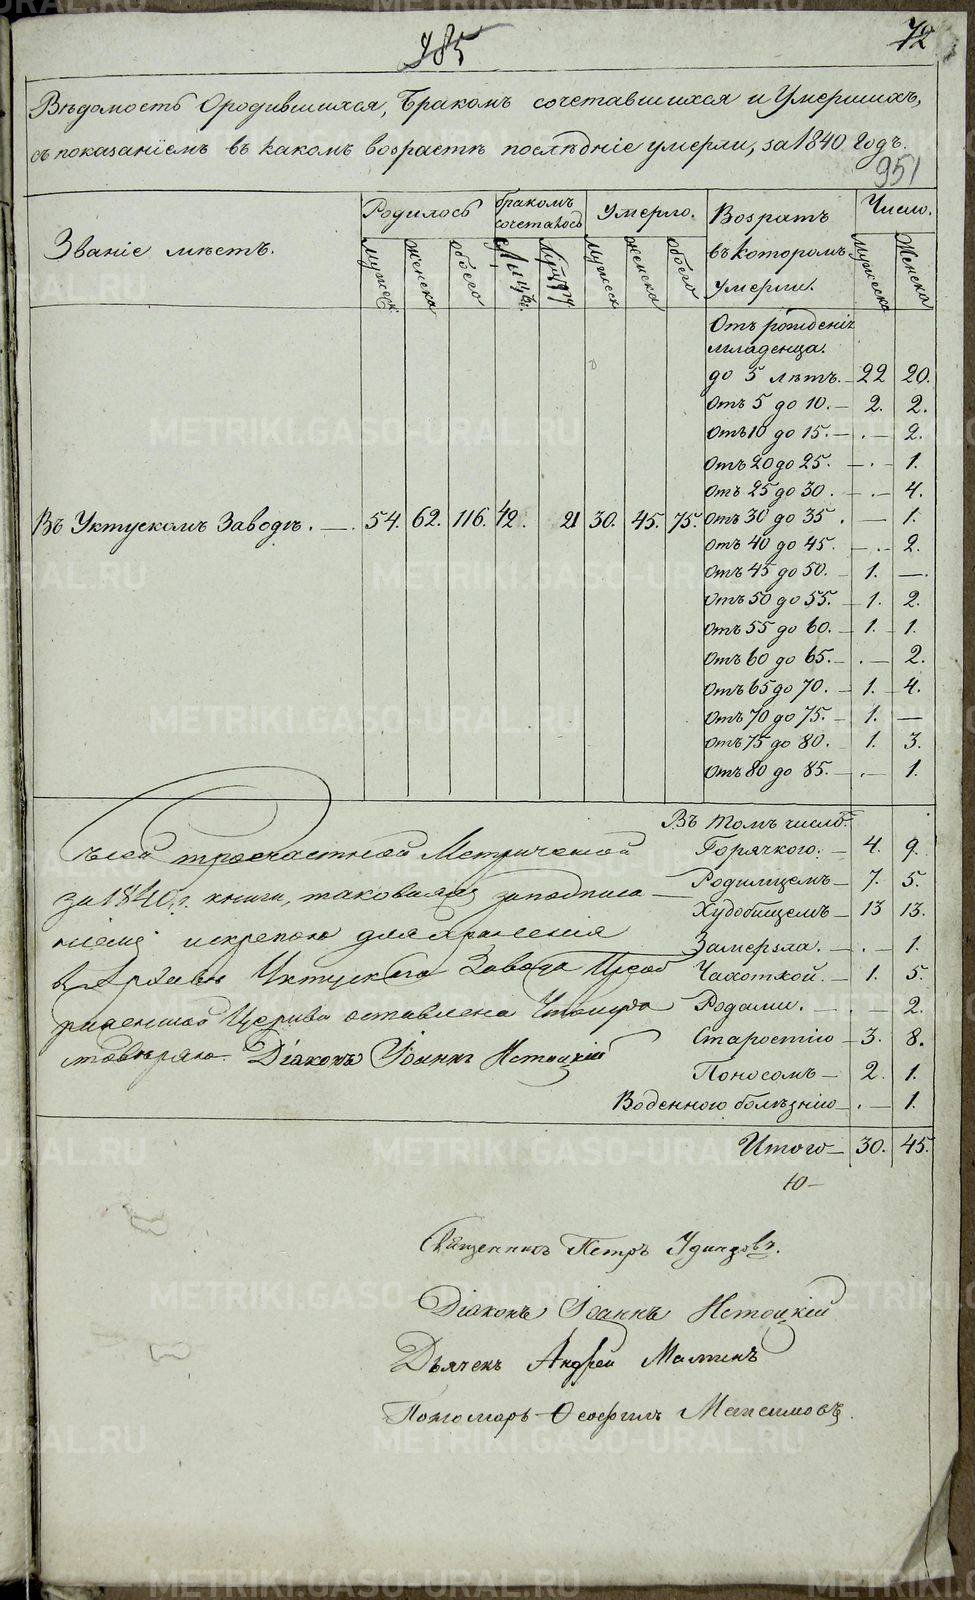 985
72
Вѣдомость Ородившихся, Бракомъ сочетавшихся и Умершихъ,
съ показанїемъ въ какомъ возрастѣ послѣднїе умерли, за 1840 годъ.
951
Званїе мѣстъ.
Родилось
бракомъ сочеталось
Умерло.
Возратъ въ которомъ умерли.
Число.
мужеск
женска
обоего
Лицъ.
мужеск
женска
обоего
мужеска
Женска
Въ Уктускомъ Заводѣ. — 54. 62. 116. 42. 21 30. 45. 75.
Отъ рожденїя
младенца.
до 5 лѣтъ. — 22 20.
Отъ 5 до 10. — 2. 2.
Отъ 10 до 15. — . — 2.
Отъ 20 до 25. — . — 1.
Отъ 25 до 30. — . — 4.
Отъ 30 до 35. — 1.
Отъ 40 до 45. — . — 2.
Отъ 45 до 50. — 1. —.
Отъ 50 до 55. — 1. 2.
Отъ 55 до 60. — 1. 1.
Отъ 60 до 65. — . — 2.
Отъ 65 до 70. — 1. 4.
Отъ 70 до 75. — 1. —
Отъ 75 до 80. — 1. 3.
Отъ 80 до 85. — . — 1.
Въ томъ числѣ:
Горячкою. — 4. 9.
Родимцемъ — 7. 5.
Худобищемъ — 13 13.
Замерзла. — . — 1.
Чахоткой. — 1. 5.
Родами. — . — 2.
Старостїю — 3. 8.
Поносомъ — 2. 1.
Воденною болѣзнїю — . — 1.
Итого — 30. 45.
Ю —
съ сей троечастной Метрической
за 1840 г. книги, таковая за подписа-
нїемъ и скрепою для хранения
в Архивѣ Уктускаго Завода Преоб
раженской Церкви оставлена
Дїаконъ Їоаннъ Нетоцкїй
Священникъ Петръ Удинцовъ.
Дїаконъ Їоаннъ Нетоцкїй
Дьячекъ Андрей Маминъ
Пономарь Ѳеофилъ Максимовъ.
METRIKI.GASO-URAL.RU